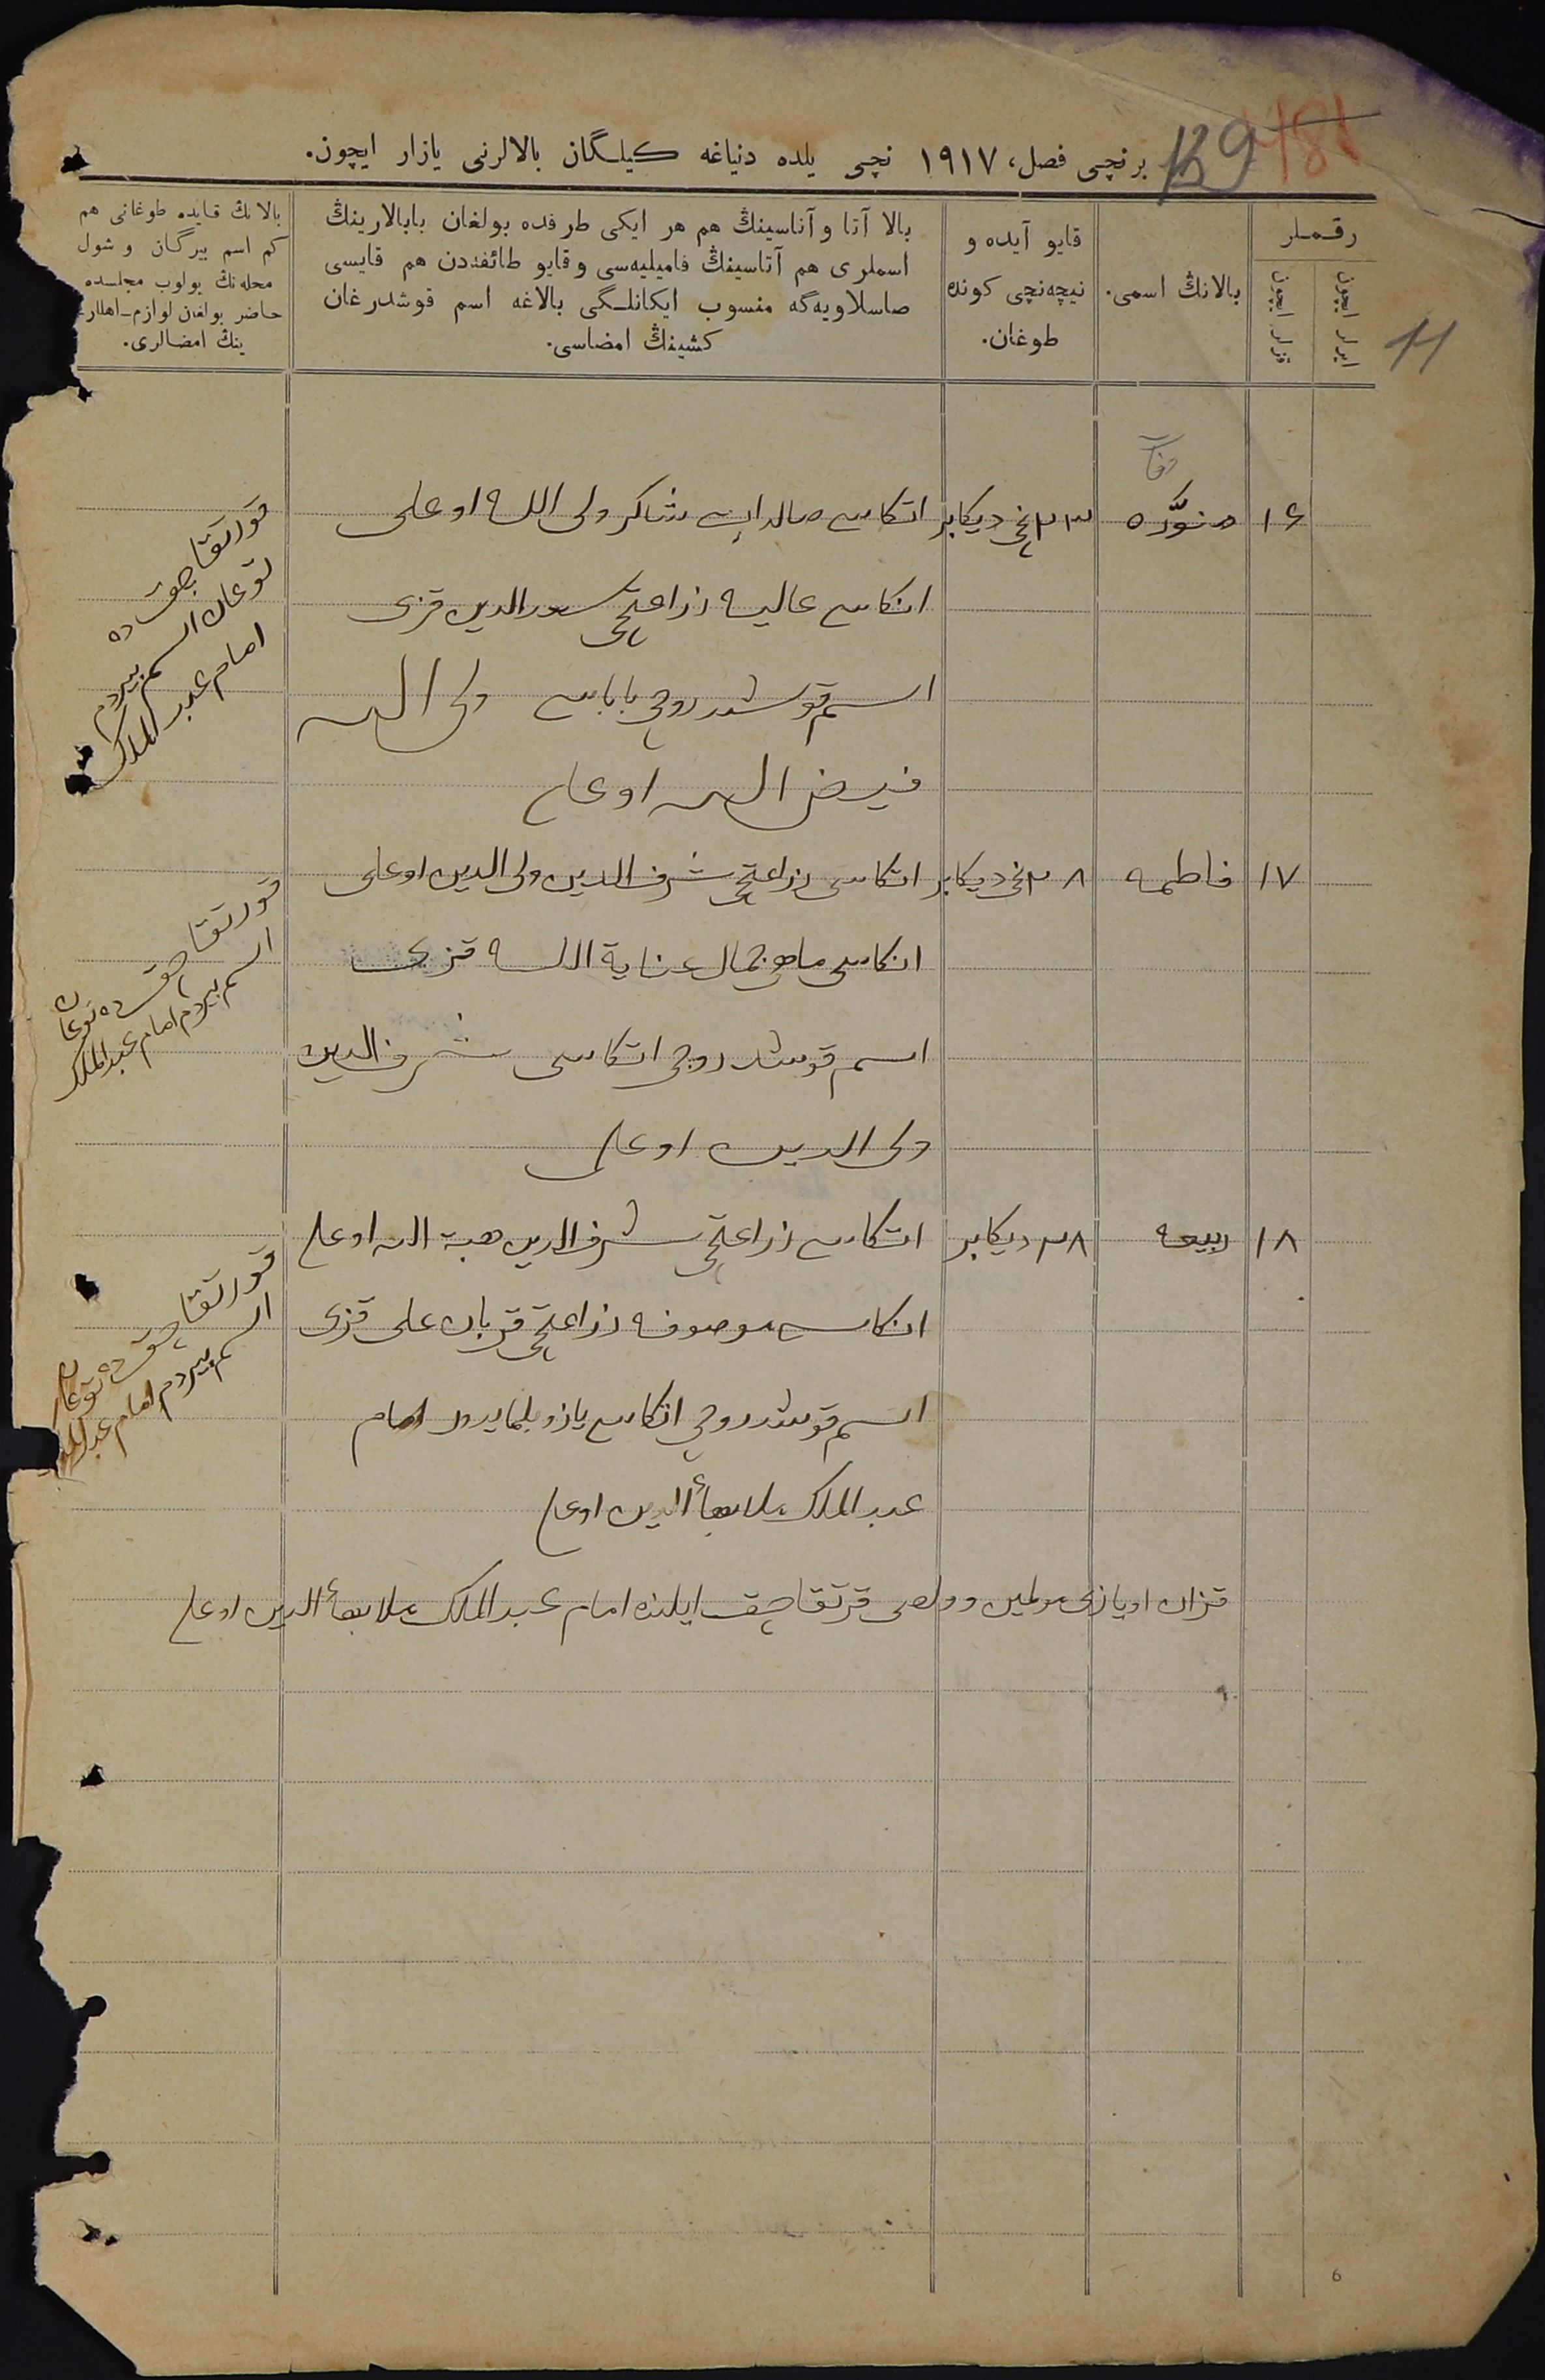 181
139
برنچی فصل، ١٩١٧ نچی یلده دنیاغه کیلگان بالالرنی یازار ایچون.
11
رقملر
ایرلر ایچون
قزلر ایچون
بالانڭ اسمی.
قایو آیده و نیچه‌نچی کونده طوغان.
بالا آتا و آناسینڭ هم هر ایکی طرفده بولغان بابالارینڭ
اسملری هم آتاسینڭ فامیلیه‌سی و قایو طائفه‌دن هم قایسی
صاسلاویه‌گه منسوب ایکانلگی بالاغه اسم قوشدرغان
کشینڭ امضاسی.
بالانڭ قایده طوغانی هم
کم اسم بیرگان و شول
محله‌نڭ بولوب مجلسده
حاضر بولغان لوازم-اهللری
ینڭ امضالری.
١٦ منوّره ٢٣نچی دیکابر اتکاسی شاکر ولی الله اوغلی
انکاسی عالیه زراعتچی بدرالدین قزی
اسم قوشدروچی باباسی ولی الله
فیض الله اوغلی
قورتقاچقده
توغان اسم بیردم
امام عبدالملک
١٧ فاطمه ٢٨نچی دیکابر اتکاسی زراعتچی شرف الدین ولی الدین اوغلی
انکاسی ماهی جمال عنایة الله قزی
اسم قوشدروچی اتکاسی شرف الدین
ولی الدین اوغلی
قورتقاچقده توغان
اسم بیردم امام عبدالملک
١٨ ربیعه ٢٨ دیکابر اتکاسی زراعتچی شرف الدین هبة الله اوغلی
انکاسی موصوفه زراعتچی قربان علی قزی
اسم قوشدروچی اتکاسی یازو بلمایدر امام
عبد الملک ملا بهاء الدین اوغلی
قورتقاچقده توغان
اسم بیردم امام عبدالملک
قزان اویازی وولصی قرتقاچق ایلنده امام عبد الملک ملا بهاء الدین اوغلی
6